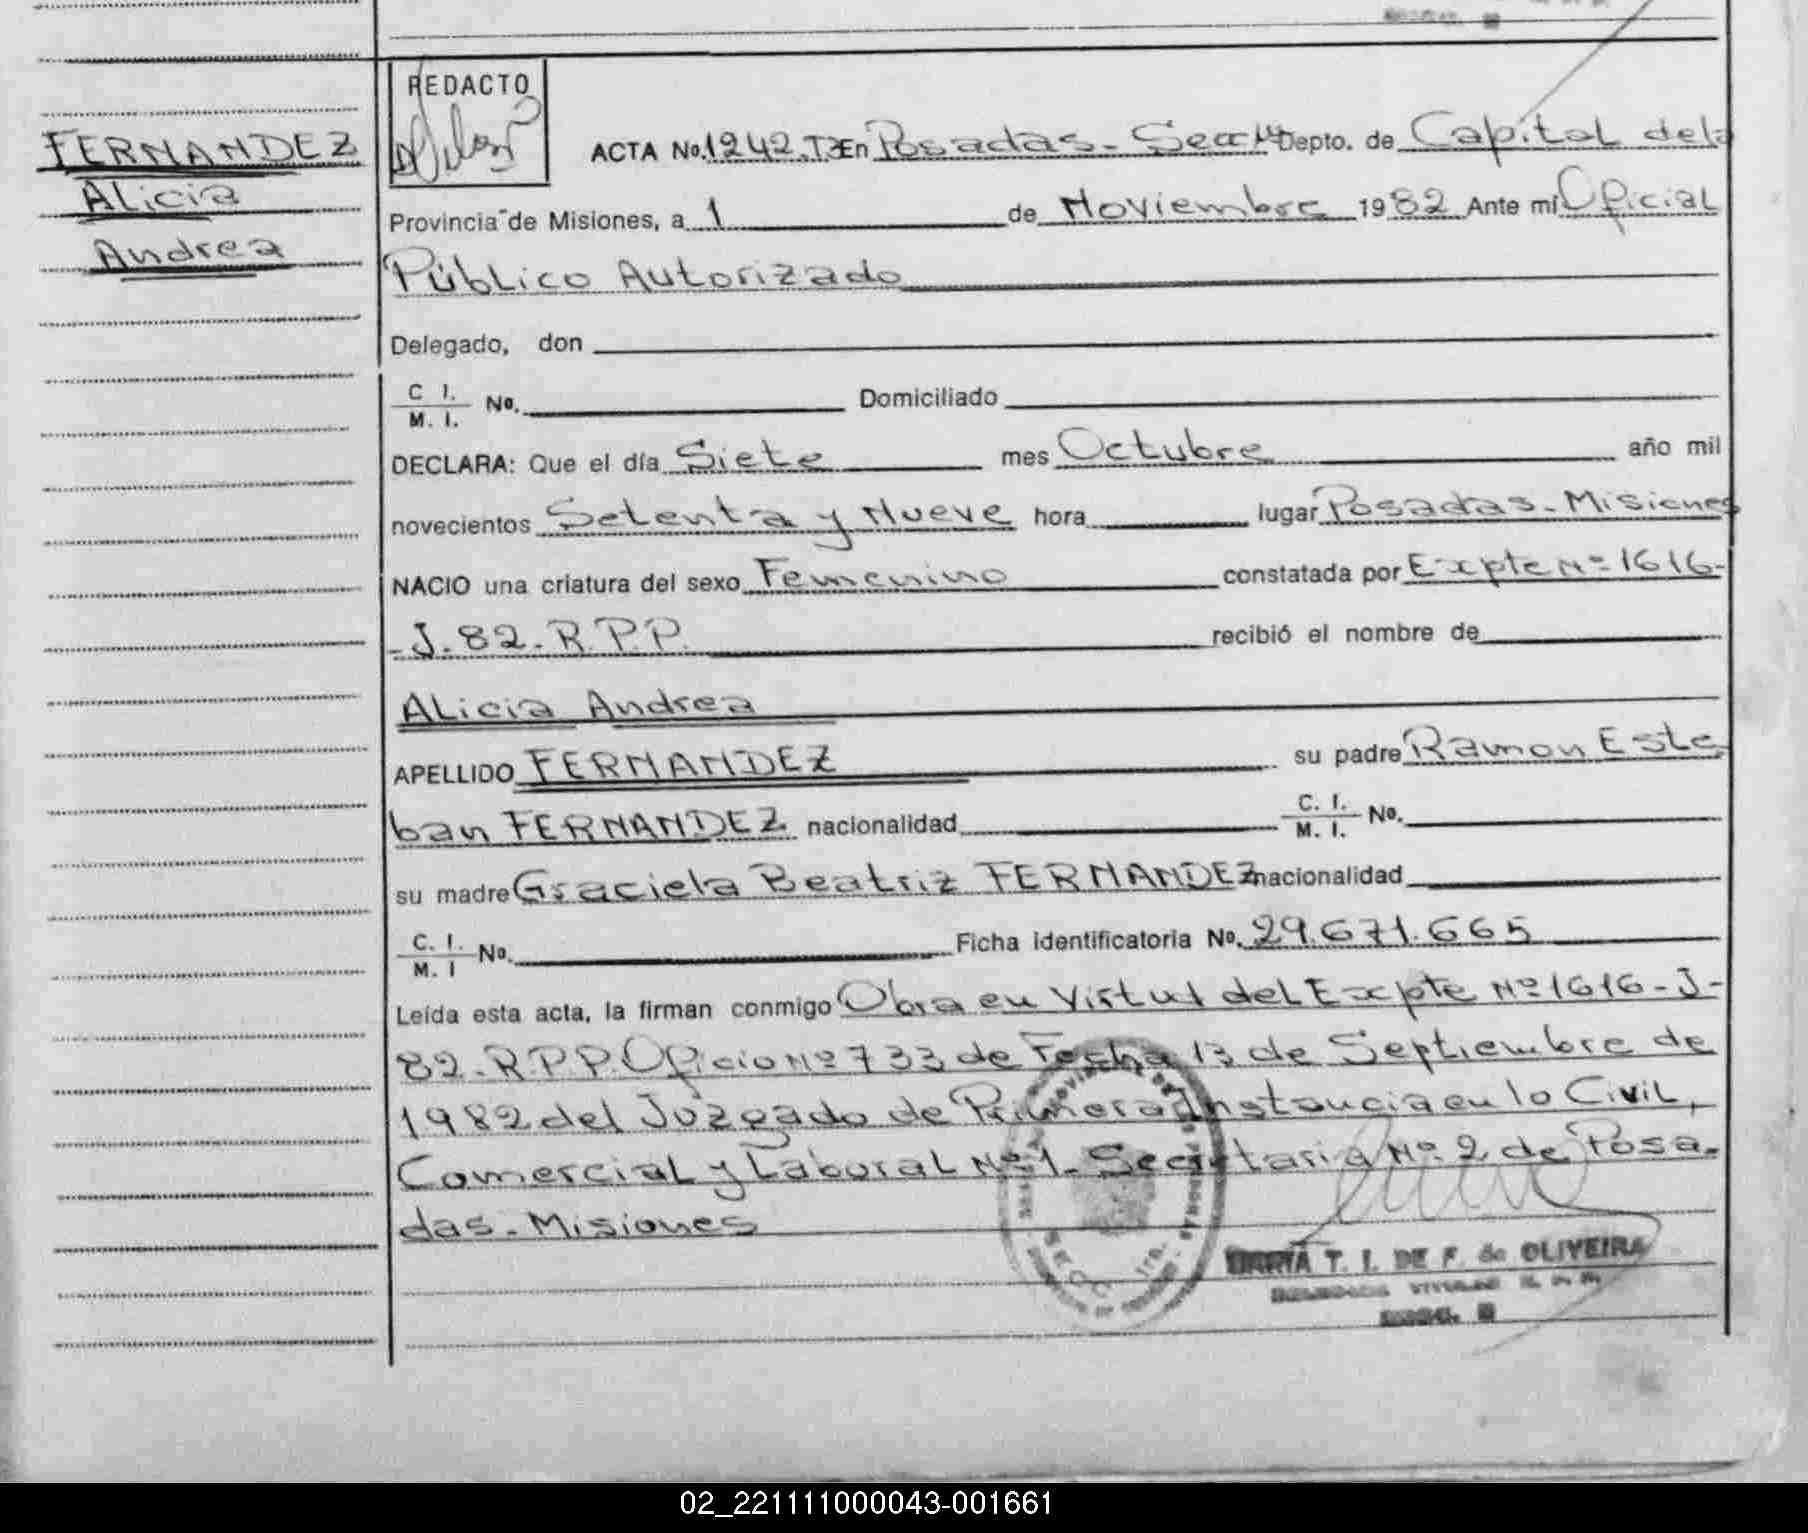 FERNANDEZ
Alicia
Andrea
REDACTO
ACTA No. 1242. T3 En Posadas - Secc 1ª Depto. de Capital de la
Provincia de Misiones, a 1 de Noviembre 1982 Ante mi Oficial
Público Autorizado
Delegado, don
C I. / M. I. No. Domiciliado
DECLARA: Que el día Siete mes Octubre año mil
novecientos Setenta y Nueve hora lugar Posadas - Misiones
NACIO una criatura del sexo Femenino constatada por Expte Nº 1616-
-J-82-R.P.P. recibió el nombre de
Alicia Andrea
APELLIDO FERNANDEZ su padre Ramon Este
ban FERNANDEZ nacionalidad C. I. / M. I. No.
su madre Graciela Beatriz FERNANDEZ nacionalidad
C. I. / M. I No. Ficha identificatoria No. 29.671.665
Leída esta acta, la firman conmigo Obra en Virtud del Expte Nº 1616-J-
82-R.P.P. Oficio Nº 733 de Fecha 13 de Septiembre de
1982 del Juzgado de Primera Instancia en lo Civil,
Comercial y Laboral Nº 1 - Secretaria Nº 2 de Posa-
das - Misiones
MARIA T. I. DE F. de OLIVEIRA
02_221111000043-001661